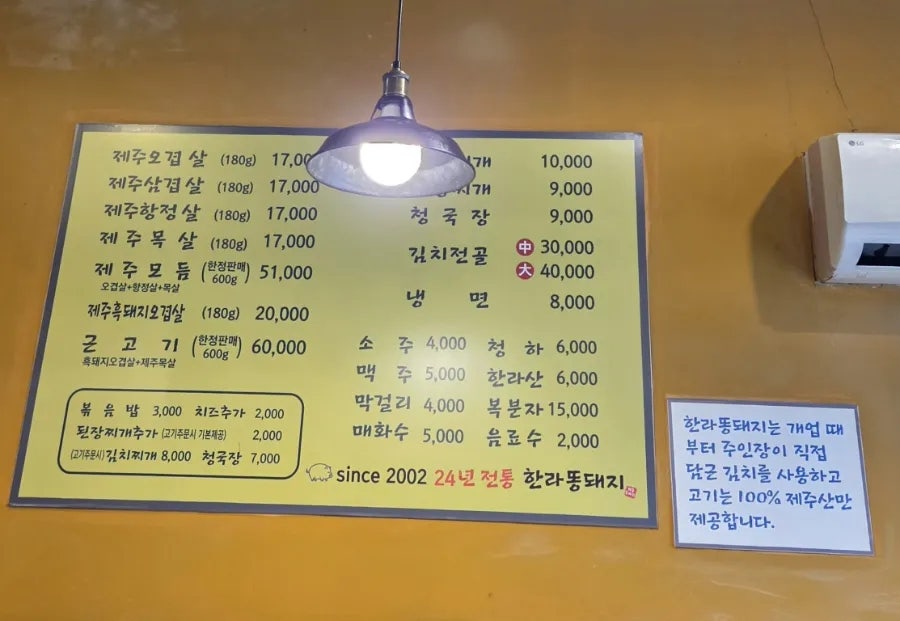 제주오겹살 (180g) 17,00
제주삼겹살 (180g) 17,000
제주항정살 (180g) 17,000
제주목살 (180g) 17,000
제주모듬 (한정판매 600g) 51,000
오겹살+항정살+목살
제주흑돼지오겹살 (180g) 20,000
근고기 (한정판매 600g) 60,000
흑돼지오겹살+제주목살
볶음밥 3,000 치즈추가 2,000
된장찌개추가 (고기주문시 기본제공) 2,000
(고기주문시) 김치찌개 8,000 청국장 7,000
찌개 10,000
찌개 9,000
청국장 9,000
김치전골 中 30,000
大 40,000
냉면 8,000
소주 4,000 청하 6,000
맥주 5,000 한라산 6,000
막걸리 4,000 복분자 15,000
매화수 5,000 음료수 2,000
since 2002 24년 전통 한라똥돼지
LG
한라똥돼지는 개업 때
부터 주인장이 직접
담근 김치를 사용하고
고기는 100% 제주산만
제공합니다.